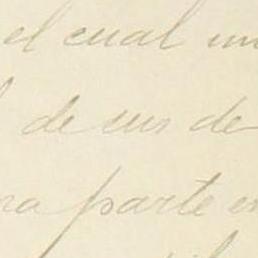 el cual un
de sus de
na parte e